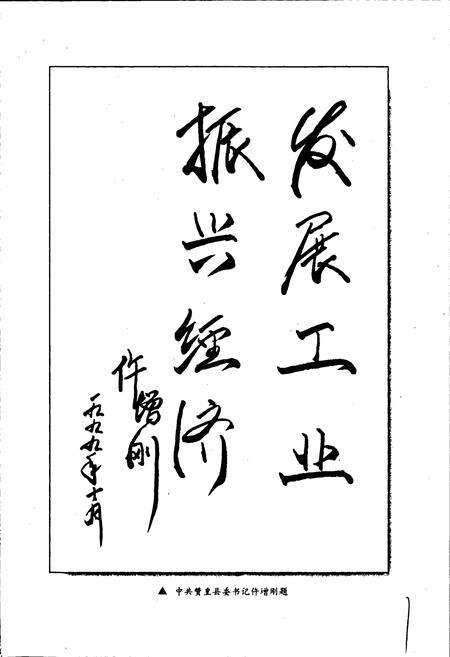 发展工业
振兴经济
仵增刚
一九九九年十月
▲ 中共赞皇县委书记仵增刚题